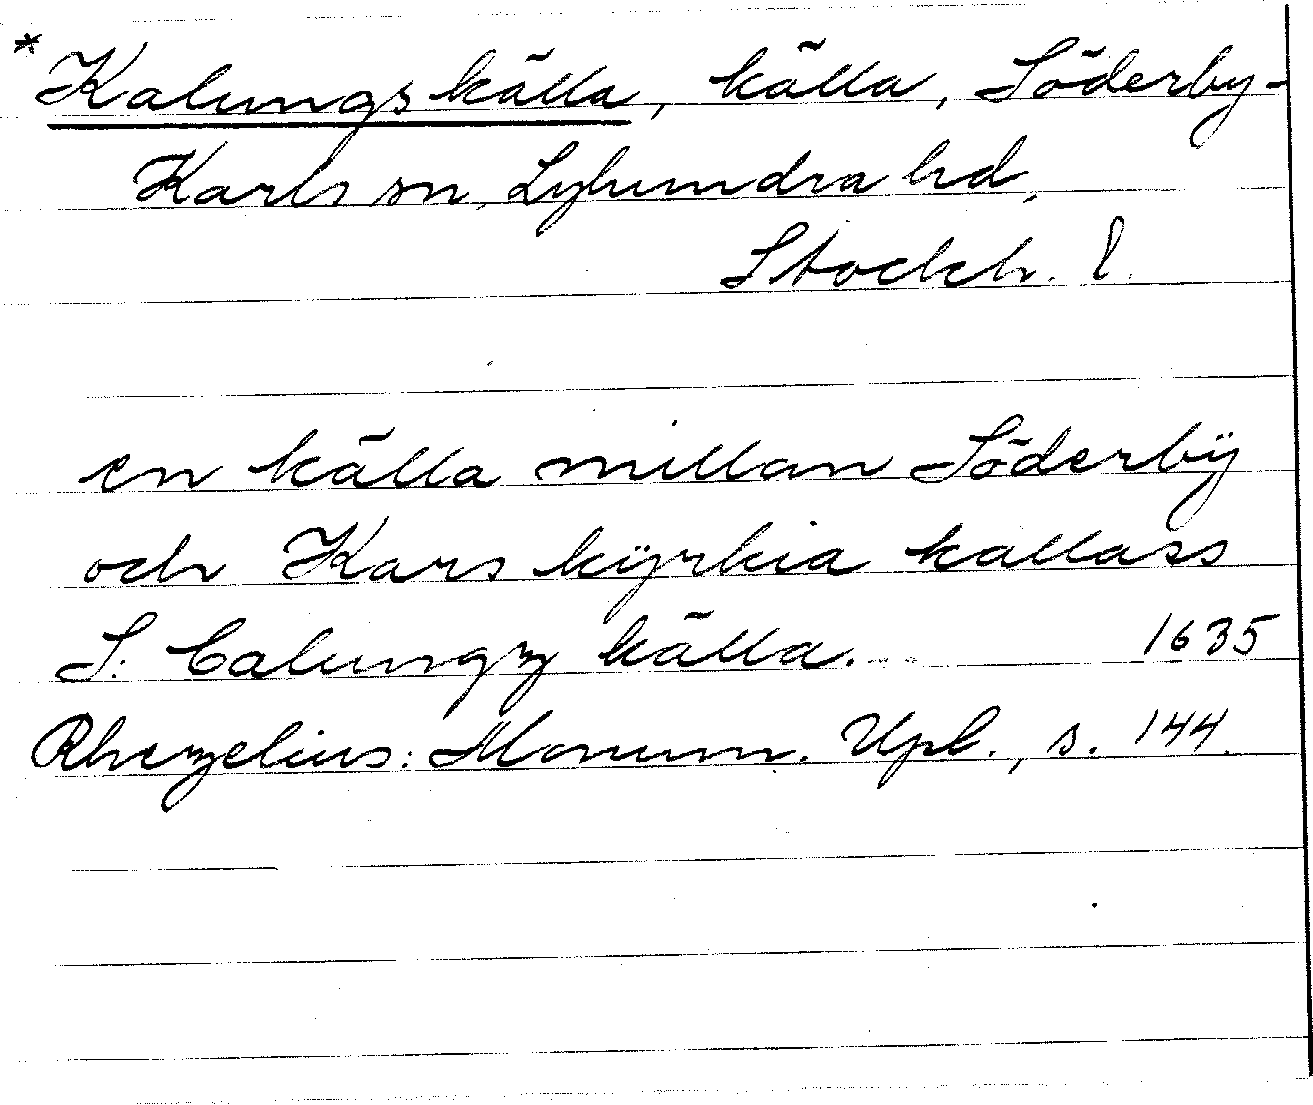 * Kalungs källa, källa, Söderby-
Karls sn, Lyhundra hd,
Stockh. l.
en källa millan Söderbÿ
och Kars kÿrkia kallass
S: Calungz källa. 1635
Rhezelius: Monum. Upl., s. 144.